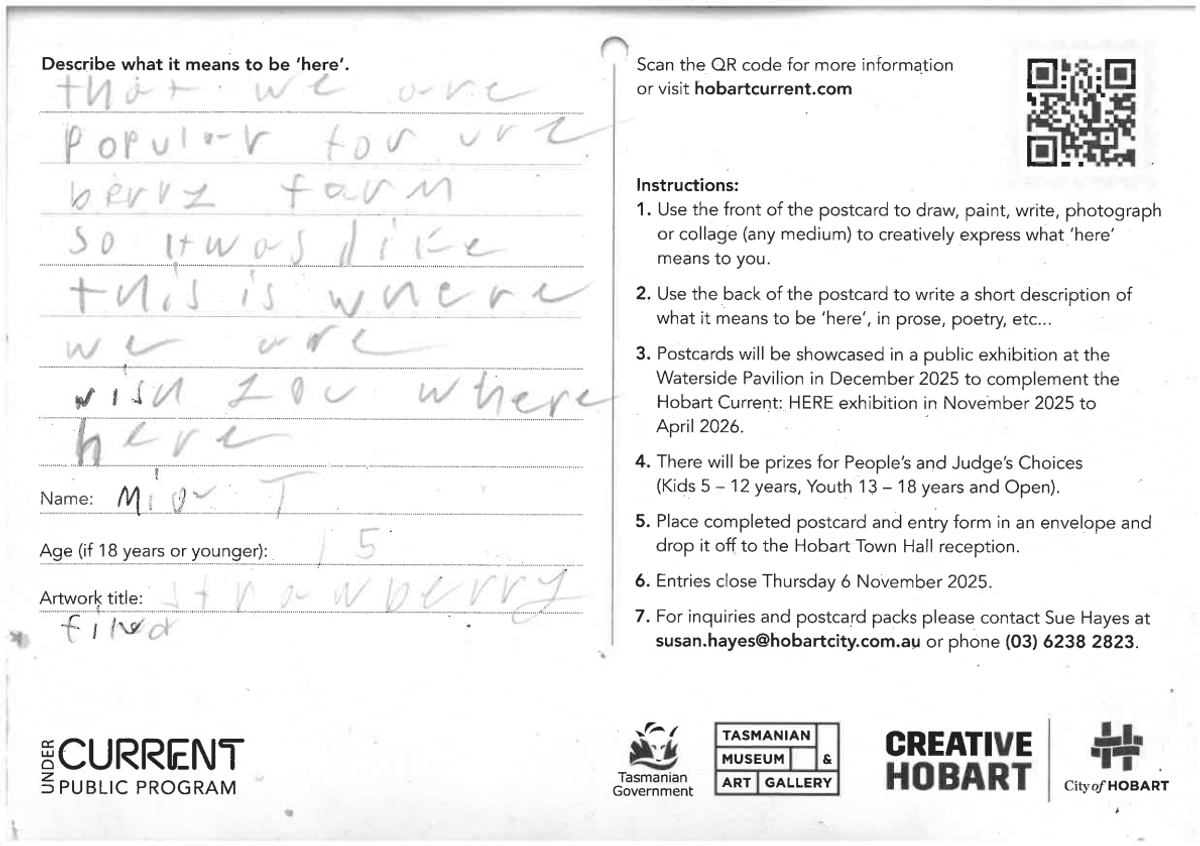 Describe what it means to be 'here'.
that we are
popular for ure
berry farm
so it was like
this is where
we are
wish you where
here
Name: Mia T
Age (if 18 years or younger): 15
Artwork title: strawberry
filed
Scan the QR code for more information
or visit hobartcurrent.com
Instructions:
1. Use the front of the postcard to draw, paint, write, photograph
or collage (any medium) to creatively express what 'here'
means to you.
2. Use the back of the postcard to write a short description of
what it means to be 'here', in prose, poetry, etc...
3. Postcards will be showcased in a public exhibition at the
Waterside Pavilion in December 2025 to complement the
Hobart Current: HERE exhibition in November 2025 to
April 2026.
4. There will be prizes for People's and Judge's Choices
(Kids 5 – 12 years, Youth 13 – 18 years and Open).
5. Place completed postcard and entry form in an envelope and
drop it off to the Hobart Town Hall reception.
6. Entries close Thursday 6 November 2025.
7. For inquiries and postcard packs please contact Sue Hayes at
susan.hayes@hobartcity.com.au or phone (03) 6238 2823.
UNDER CURRENT
PUBLIC PROGRAM
Tasmanian
Government
TASMANIAN
MUSEUM &
ART GALLERY
CREATIVE
HOBART
City of HOBART